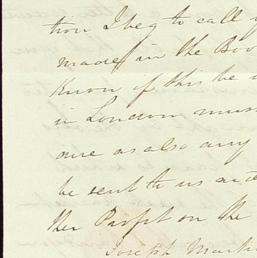 tion I beg to call y
made in the Boo
Know of this be
in London mus
one as also any
be sent to us
the Profit on the
Joseph